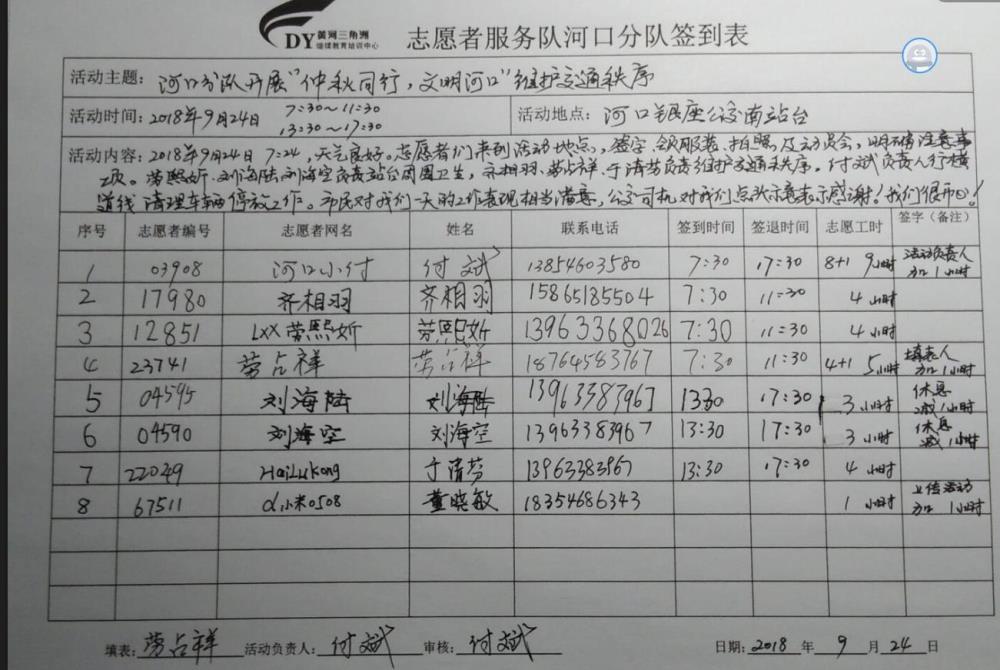 DY 黄河三角洲
继续教育培训中心
志愿者服务队河口分队签到表
活动主题：河口分队开展"仲秋同行，文明河口"维护交通秩序
活动时间：2018年9月24日 7:30~11:30 13:30~17:30 活动地点：河口银座公交南站台
活动内容：2018年9月24日 7:24，天气良好。志愿者们来到活动地点，签字、领服装、拍照、及动员会，明确注意事
项。劳熙妡、刘海陆、刘海空负责站台周围卫生，齐相羽、劳占祥、于清芬负责维护交通秩序。付斌负责人行横
道线清理车辆停放工作。市民对我们一天的工作表现相当满意，公交司机对我们点头示意表示感谢！我们很开心！
序号 志愿者编号 志愿者网名 姓名 联系电话 签到时间 签退时间 志愿工时 签字（备注）
1 03908 河口小付 付斌 13854603580 7:30 17:30 8+1 9小时 活动负责人加1小时
2 17980 齐相羽 齐相羽 15865185504 7:30 11:30 4小时
3 12851 LXX劳熙妡 劳熙妡 13963368026 7:30 11:30 4小时
4 23741 劳占祥 劳占祥 18764583767 7:30 11:30 4+1 5小时 填表人加1小时
5 04595 刘海陆 刘海陆 13963383967 1330 17:30 3小时 休息减1小时
6 04590 刘海空 刘海空 13963383967 13:30 17:30 3小时 休息减1小时
7 22049 HaiLukong 于清芬 13963383967 13:30 17:30 4小时
8 67511 α小米0508 董晓敏 18354686343 1小时 上传活动加1小时
填表：劳占祥 活动负责人：付斌 审核：付斌 日期：2018年9月24日